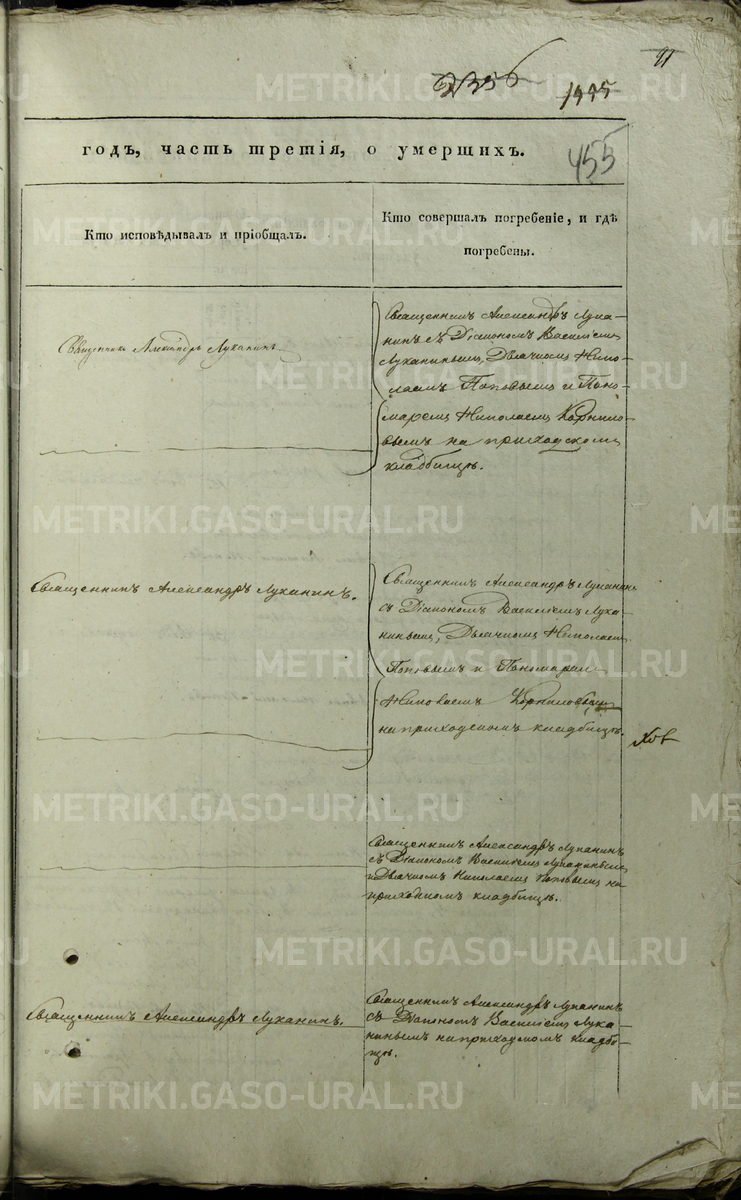 91
2356
1995
455
годъ, часть третія, о умершихъ.
Кто исповѣдывалъ и пріобщалъ.
Кто совершалъ погребеніе, и гдѣ
погребены.
Священникъ Александръ Луканинъ.
Священникъ Александръ Лука-
нинъ съ Діакономъ Василіемъ
Луканинымъ, Дьячкомъ Нико-
лаемъ Поповымъ и Поно-
маремъ Николаемъ Корнило-
вымъ на приходскомъ
кладбищѣ.
Священникъ Александръ Луканинъ.
Священникъ Александръ Луканинъ
съ Діакономъ Василіемъ Лука-
нинымъ, Дьячкомъ Николаемъ
Поповымъ и Пономарем
Николаемъ Корниловым
на приходскомъ кладбищѣ.
Священникъ Александръ Луканинъ
съ Діакономъ Василіемъ Луканинымъ
и Дьячкомъ Николаемъ Поповымъ на
приходскомъ кладбищѣ.
Священникъ Александръ Луканинъ.
Священникъ Александръ Луканинъ
съ Діакономъ Василіемъ Лука-
нинымъ на приходскомъ кладби-
щѣ.
METRIKI.GASO-URAL.RU